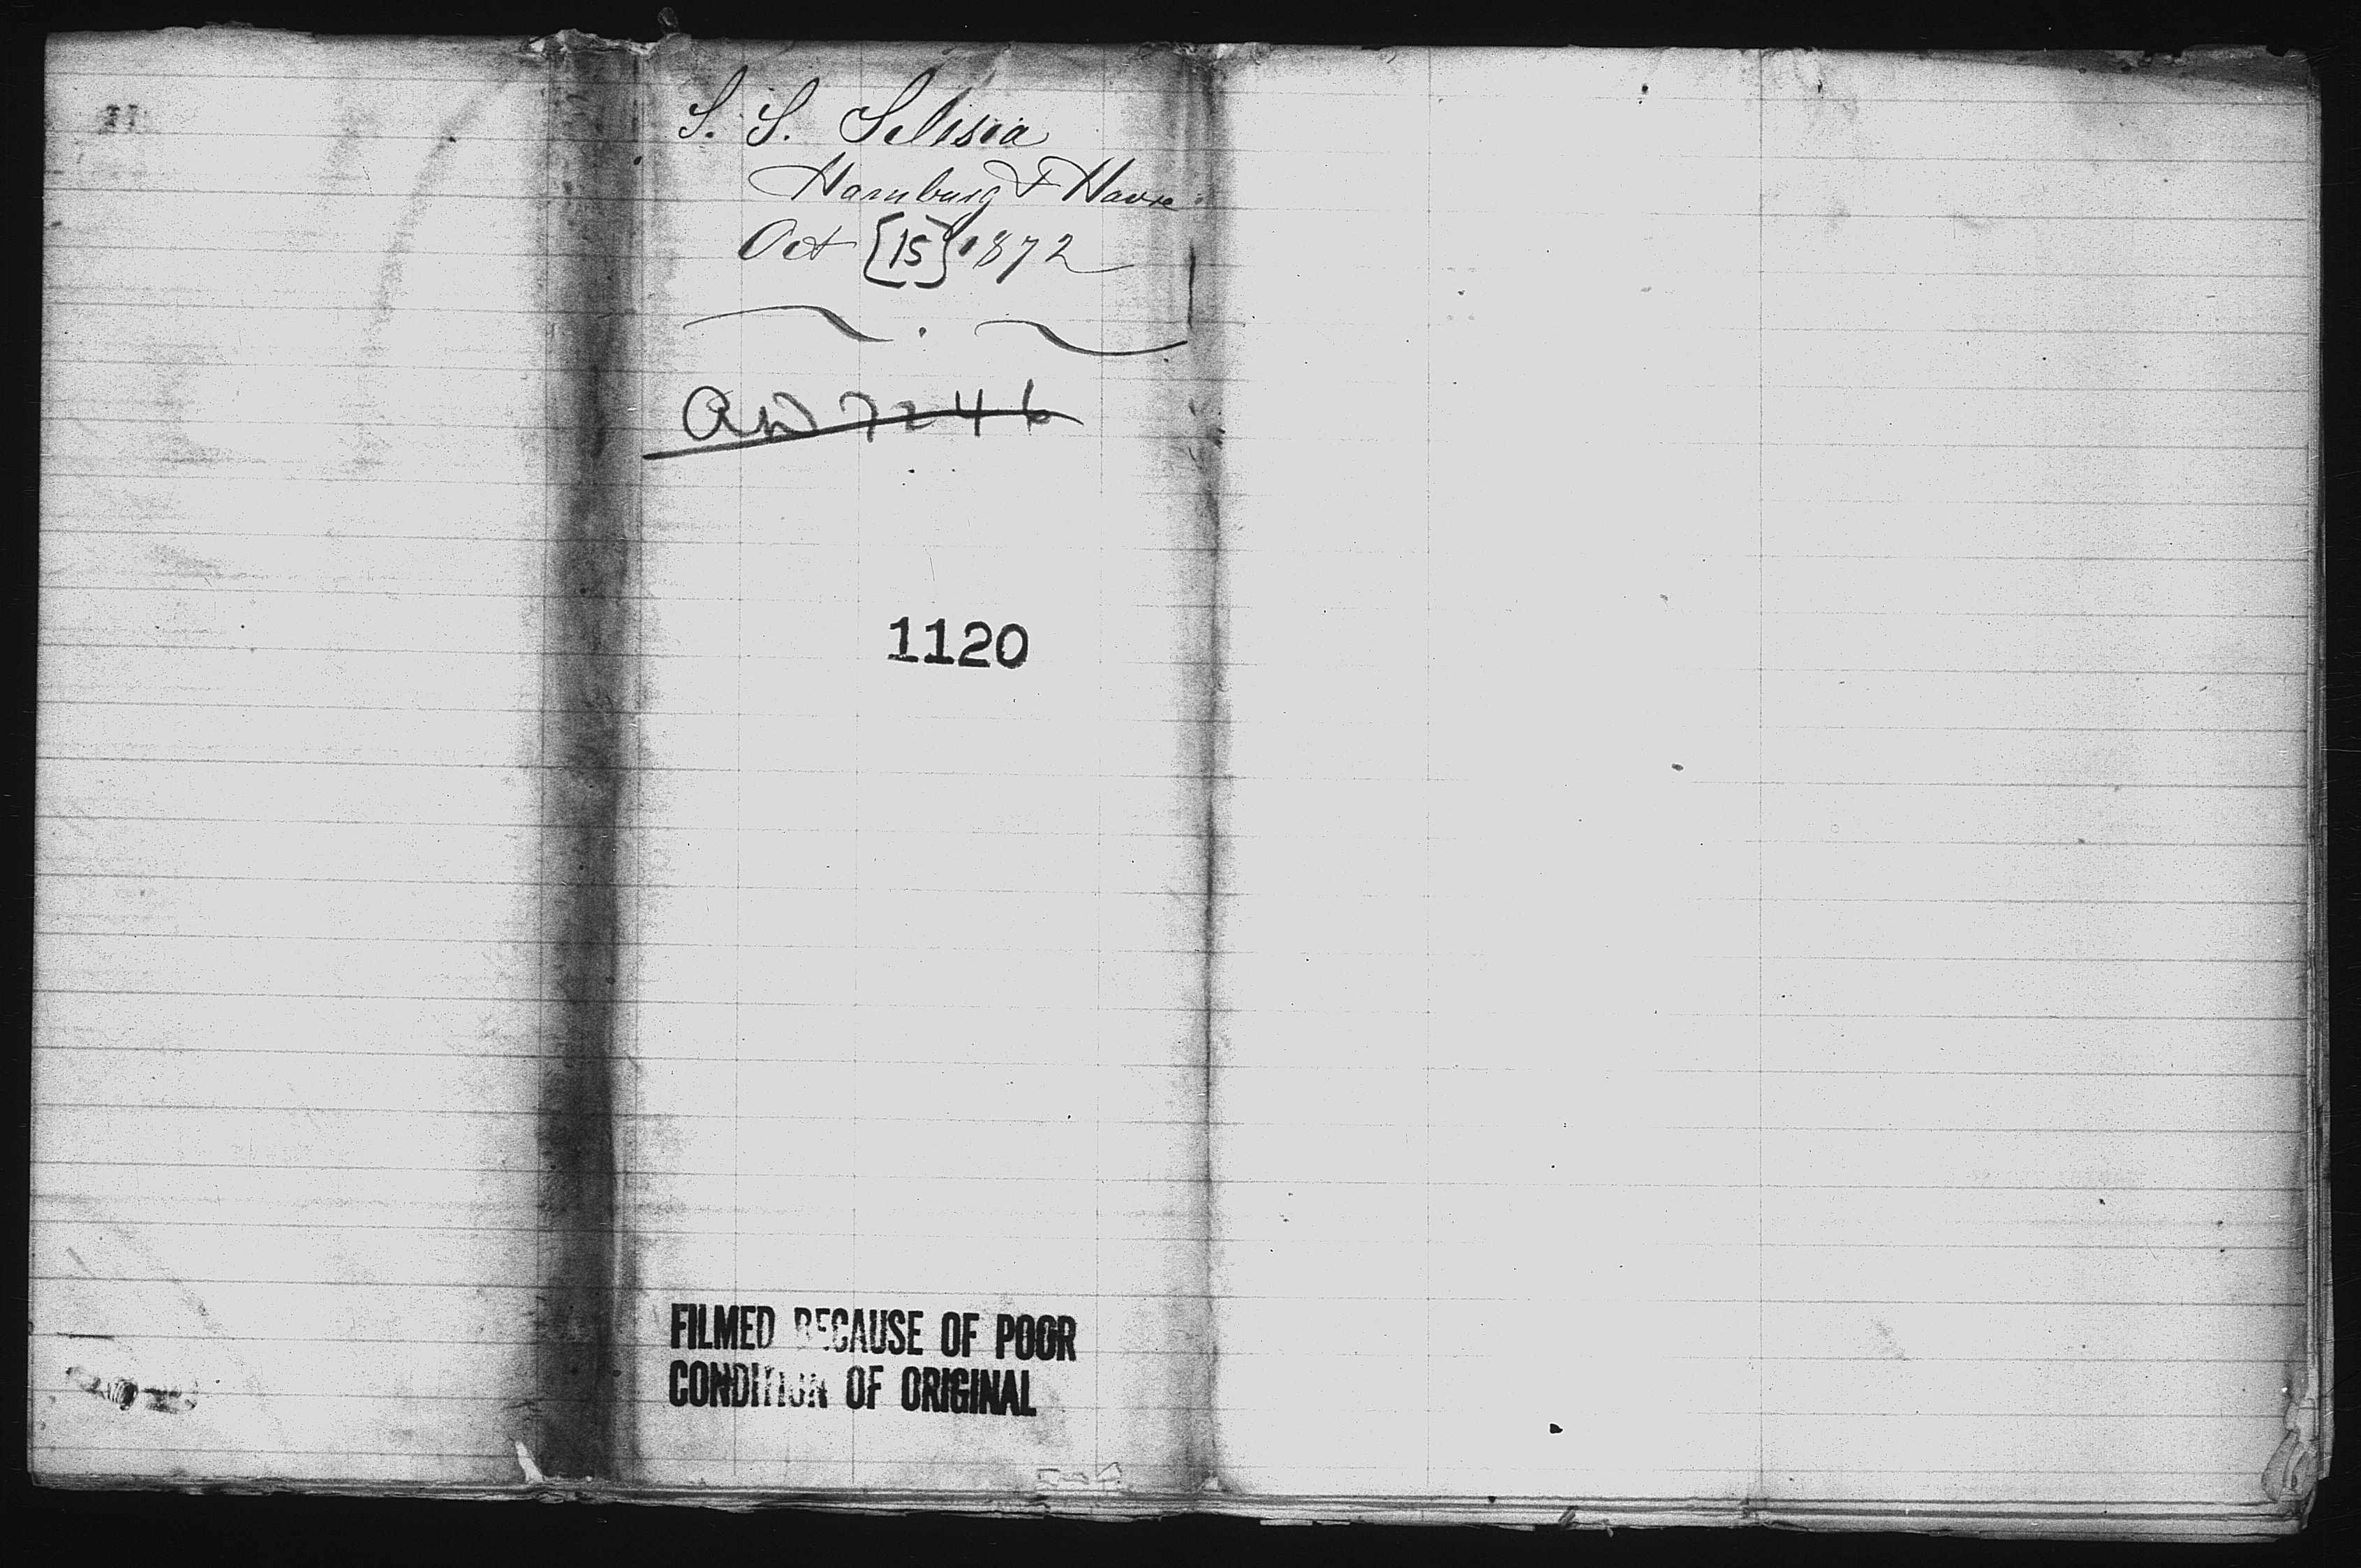 S. S. Silisia
Hamburg & Havre
Oct [15] 1872
1120
FILMED BECAUSE OF POOR
CONDITION OF ORIGINAL